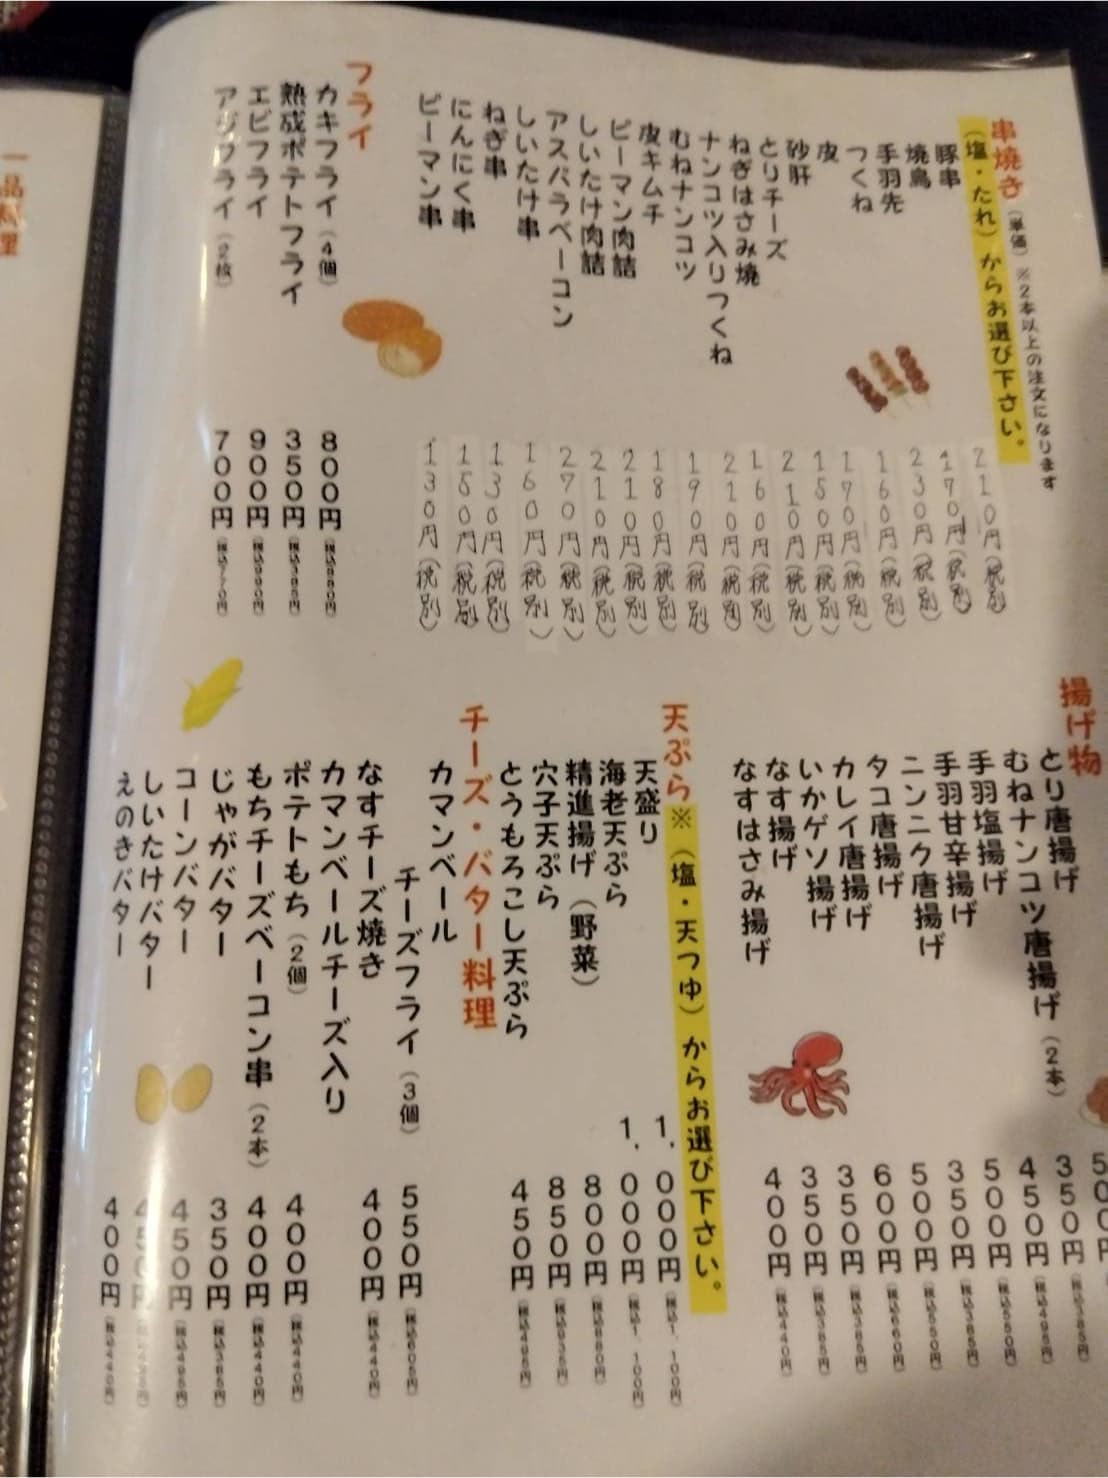 串焼き（単価）※2本以上の注文になります
（塩・たれ）からお選び下さい。
豚串 210円（税別）
焼鳥 170円（税別）
手羽先 230円（税別）
つくね 160円（税別）
皮 170円（税別）
砂肝 150円（税別）
とりチーズ 210円（税別）
ねぎはさみ焼 160円（税別）
ナンコツ入りつくね 210円（税別）
むねナンコツ 190円（税別）
皮キムチ 180円（税別）
ピーマン肉詰 210円（税別）
しいたけ肉詰 210円（税別）
アスパラベーコン 270円（税別）
しいたけ串 160円（税別）
ねぎ串 130円（税別）
にんにく串 150円（税別）
ピーマン串 130円（税別）
フライ
カキフライ（4個） 800円（税込880円）
熟成ポテトフライ 350円（税込385円）
エビフライ 900円（税込990円）
アジフライ（2枚） 700円（税込770円）
揚げ物
とり唐揚げ
むねナンコツ唐揚げ（2本） 350円（税込385円）
手羽塩揚げ 450円（税込495円）
手羽甘辛揚げ 500円（税込550円）
ニンニク唐揚げ 350円（税込385円）
タコ唐揚げ 500円（税込550円）
カレイ唐揚げ 600円（税込660円）
いかゲソ揚げ 350円（税込385円）
なす揚げ 350円（税込385円）
なすはさみ揚げ 400円（税込440円）
天ぷら※（塩・天つゆ）からお選び下さい。
天盛り 1,000円（税込1,100円）
海老天ぷら 1,000円（税込1,100円）
精進揚げ（野菜） 800円（税込880円）
穴子天ぷら 850円（税込935円）
とうもろこし天ぷら 450円（税込495円）
チーズ・バター料理
カマンベール
チーズフライ（3個） 550円（税込605円）
なすチーズ焼き 400円（税込440円）
カマンベールチーズ入り
ポテトもち（2個） 400円（税込440円）
もちチーズベーコン串（2本） 400円（税込440円）
じゃがバター 350円（税込385円）
コーンバター 450円（税込495円）
しいたけバター 450円（税込495円）
えのきバター 400円（税込440円）
一品料理